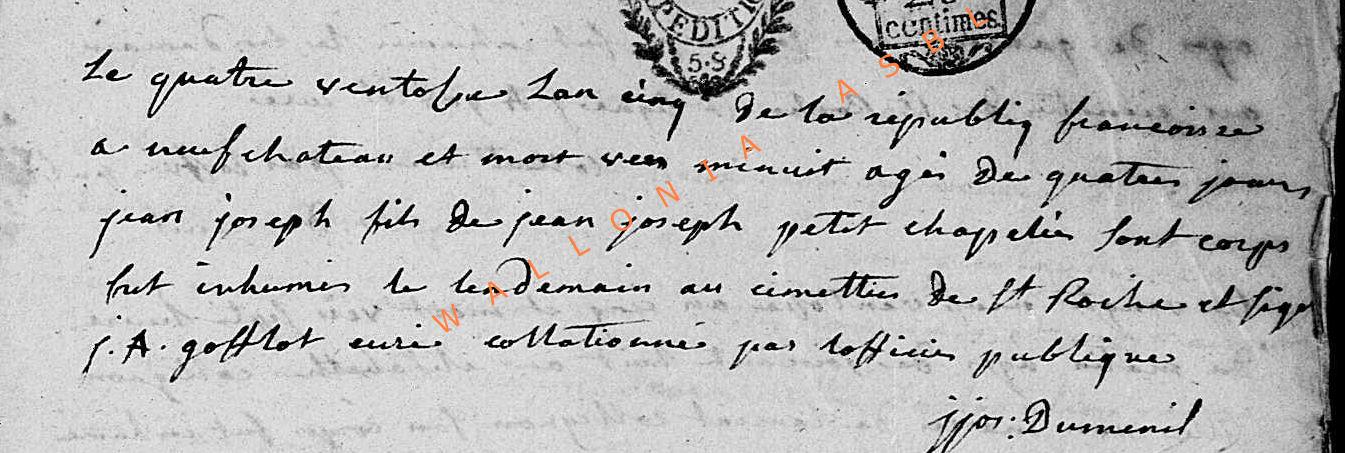 PEDITI
5.S
centimes
Le quatre ventosse Lan cinq de la républiq francoisse
a neufchateau et mort vers minuit agés de quatres jours
jean joseph fils de jean joseph petit chapeliés sont corps
fut inhumés le lendemain au cimettiés de St Roche et signé
j. A. gofflot curé collationné par lofficiés publique
jjos: Dumenil
WALLONIA ASBL